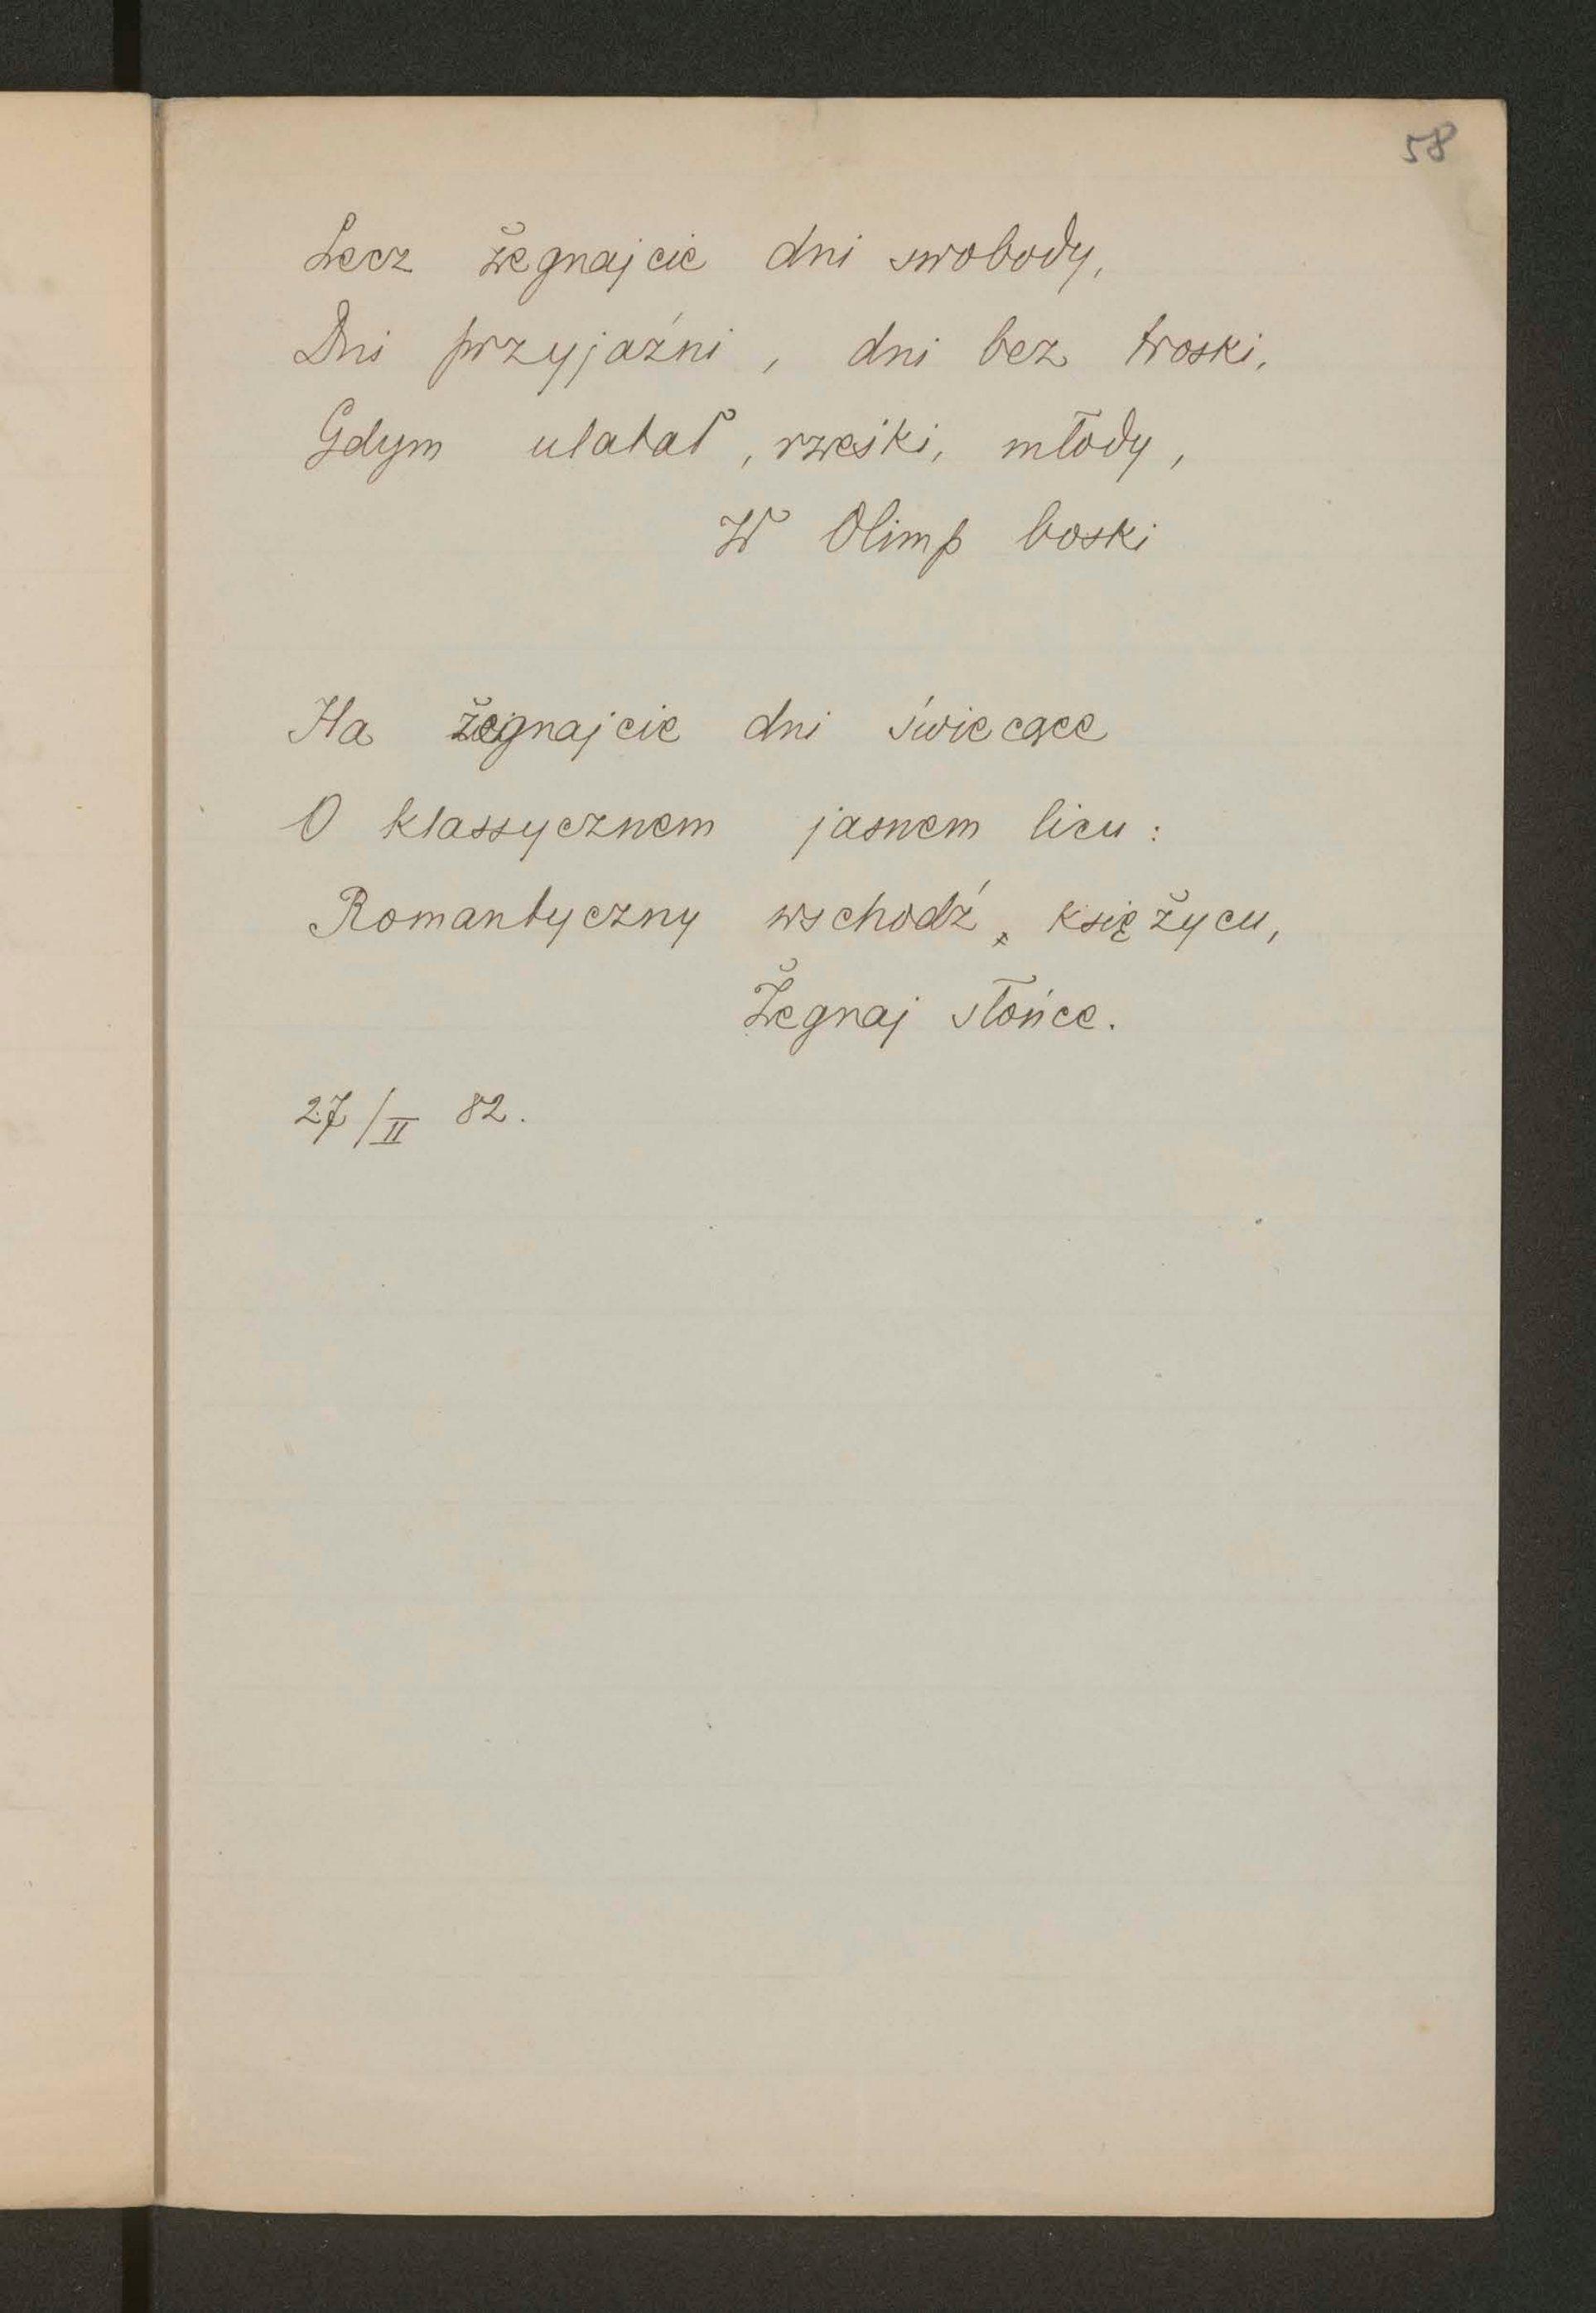 58
Lecz żegnajcie dni swobody,
Dni przyjaźni, dni bez troski,
Gdym ulatał, rzeźki, młody,
W Olimp boski
Ha żegnajcie dni świecące
O klassycznem jasnem licu:
Romantyczny wschodź, księżycu,
Żegnaj słońce.
27/II 82.